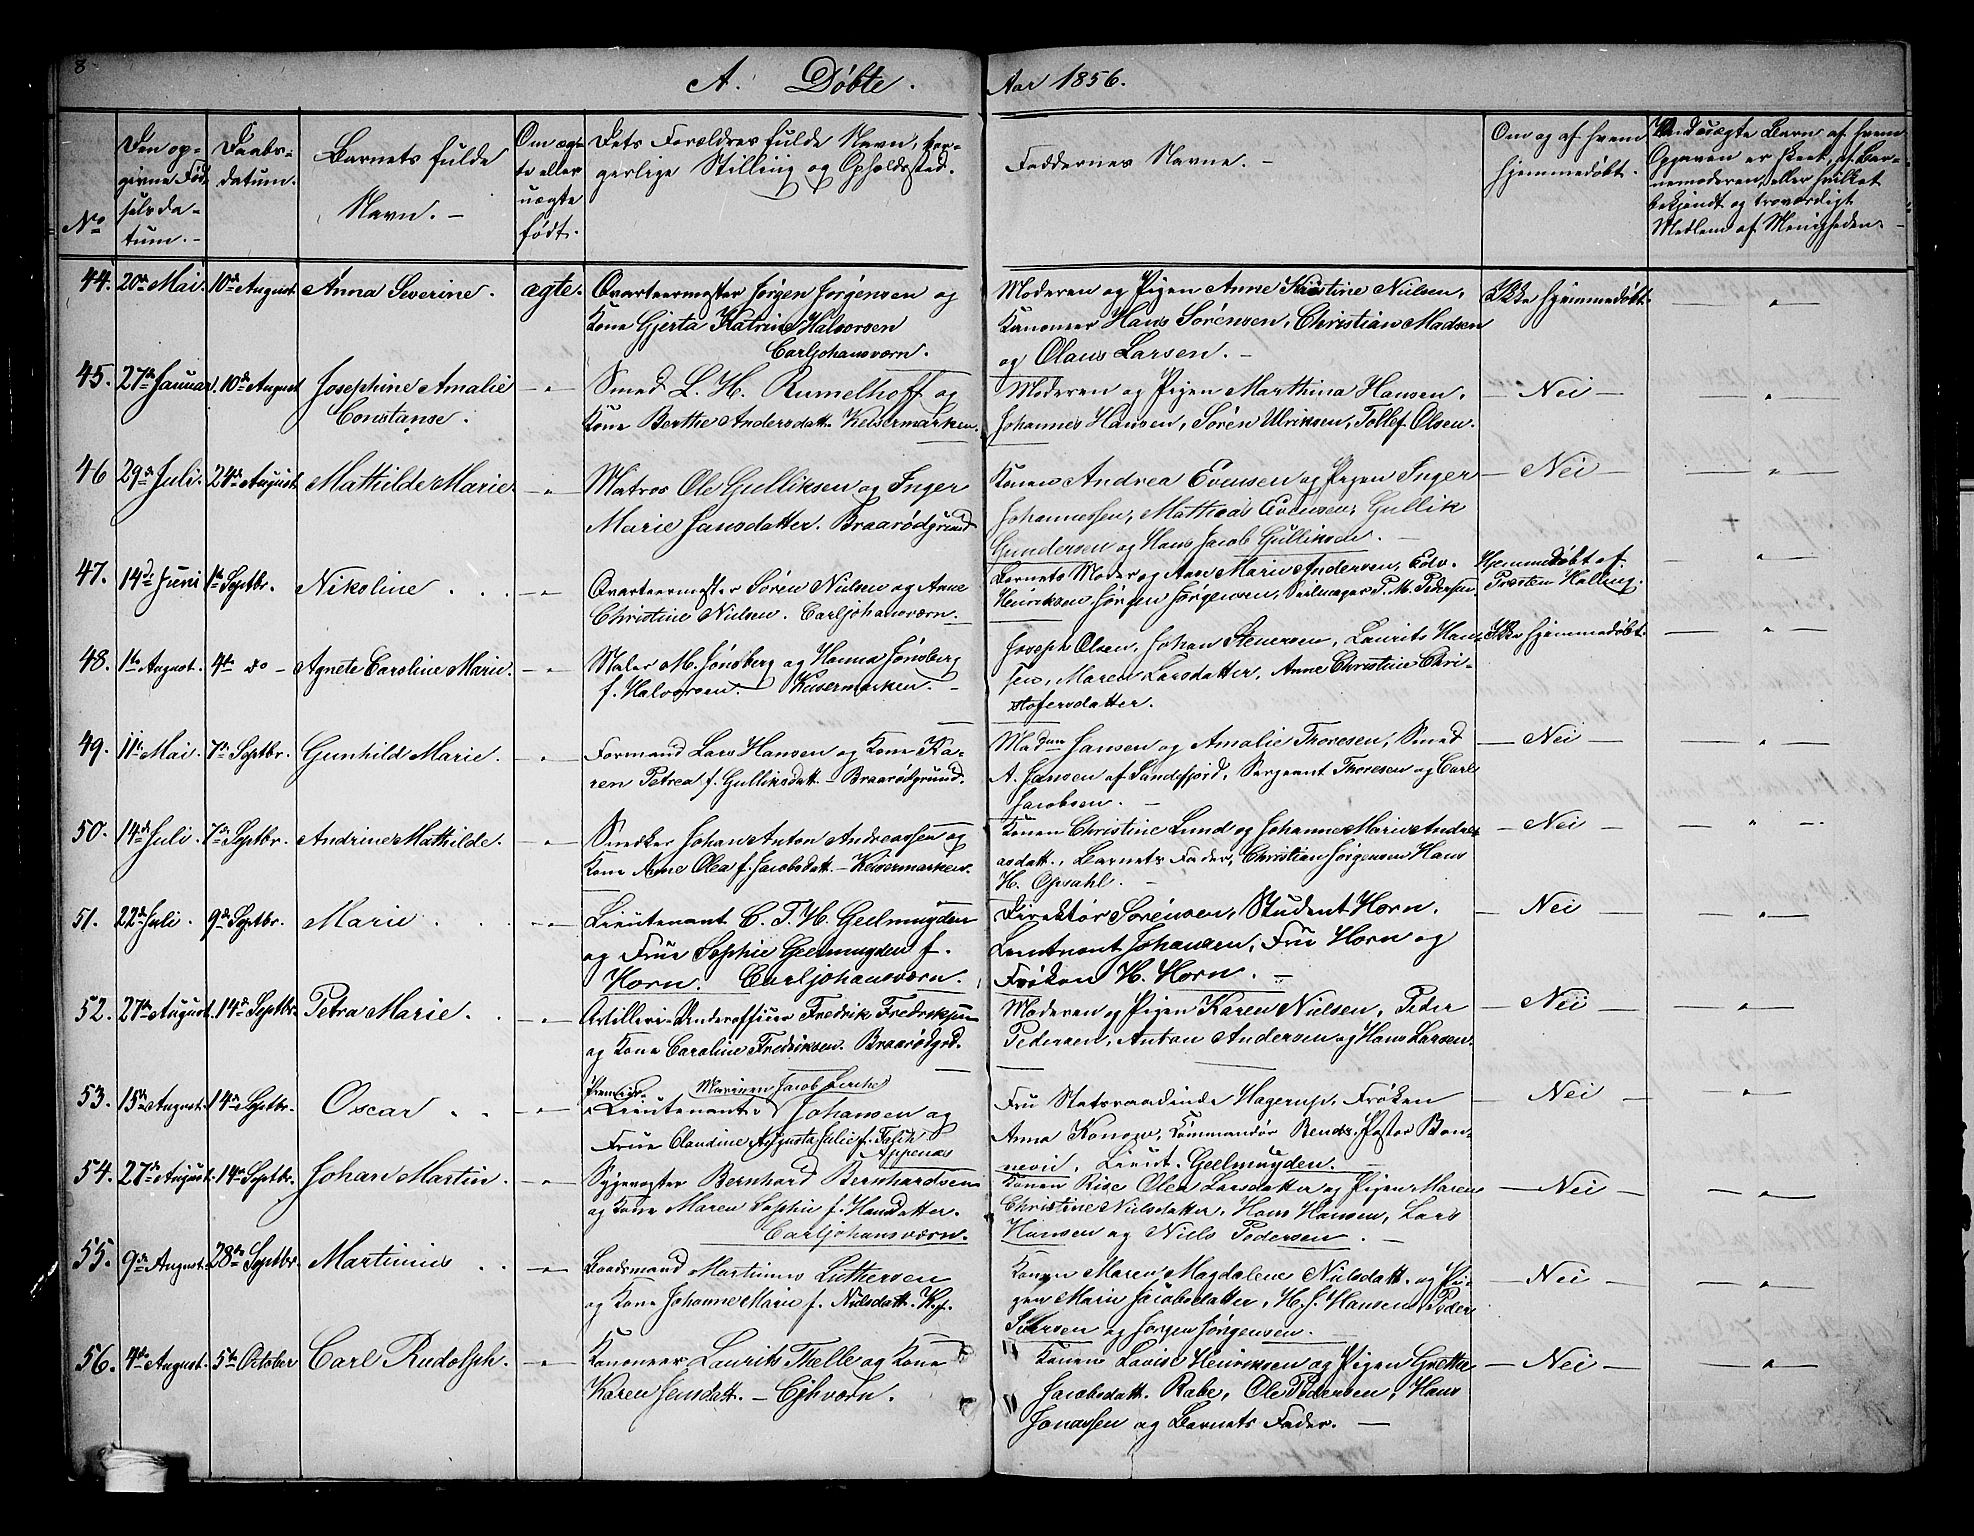 8
A. Døbte. Aar 1856.
No
Den opgivne Fødselsdatum. -
Daabsdatum.
Barnets fulde Navn. -
Om ægte eller uægte født.
Dets Forældres fulde Navn, borgerlige Stilling og Opholdssted.
Faddernes Navne. -
Om og af hvem hjemmedøbt.
Ved uægte Barn, af hvem Opgaven er skeet, af Barnemoderen, eller hvilket bekjendt og troværdigt Medlem af Menigheden. -
44. 20de Mai. 10de August. Anna Severine. ægte. Qvarteermester Jørgen Jørgensen og
Kone Gjerta Katrine Halvorsen
Carljohansværn.
Moderen og Pigen Anne Kristine Nielsen,
Kanoneer Hans Sørensen, Christian Madsen
og Olaus Larsen. -
Ikke hjemmedøbt. — " —
45. 27de Januar. 10de August Josephine Amalie
Constanse.
- " - Smed L. H. Rumelhoff og
Kone Berthe Andersdatt. Keisermarken.
Moderen og Pigen Marthina Hansen,
Johannes Hansen, Søren Ulriksen, Tollef Olsen.
— Nei — — " —
46 29de Juli. 24de August Mathilde Marie. - " - Matros Ole Gulliksen og Inger
Marie Jansdatter. Braarødgrund
Konen Andrea Evensen og Pigen Inger
Johannessen, Mathias Evensen, Gullik
Gundersen og Hans Jacob Gulliksen. -
— Nei — — " —
47. 14de Juni 1te Septbr. Nikoline . . - " - Qvarteermester Søren Nielsen og Anne
Christine Nielsen. Carljohansværn. -
Barnets Moder og Ane Marie Andersen, Edv.
Henriksen, Jørgen Jørgensen, Seilmager P. M. Pedersen.
Hjemmedøbt af
Præsten Holling. — " —
48. 1te August. 4de do - Agnete Caroline Marie. - " - Maler M. Jønsberg og Hanna Jønsberg
f. Halvorsen. Keisermarken. -
Joseph Olsen, Johan Stenersen, Laurits Han-
sen, Maren Larsdatter, Anne Christine Chri-
stofersdatter.
Ikke hjemmedøbt. — " —
49. 11te Mai. 7de Septbr. Gunhild Marie. - " - Formand Lars Hansen og Kone Ka-
ren Petrea f. Gulliksdatt. - Braarødgrund.
Madam Jansen og Amalie Thoresen, Smed
A. Jansen af Sandefjord, Sergeant Thoresen og Carl
Jacobsen. -
— Nei — — " —
50. 14de Juli. 7de Septbr. Andrine Mathilde. - " - Snedker Johan Anton Andreassen og
Kone Anne Olea f. Jacobsdatt. - Keisermarken.
Konen Christine Lund og Johanne Marie Andre-
asdatt., Barnets Fader, Christian Jørgensen Hans
H. Opsahl. -
— Nei — — " —
51. 22de Juli. 9de Septbr. Marie . . - " - Lieutenant C. T. H. Geelmuyden
og Frue Sophie Geelmuyden f.
Horn. Carljohansværn.
Direktør Sørensen, Student Horn.
Leutnant Johansen, Fru Horn og
Frøken H. Horn. -
— Nei — — " —
52. 27de August. 14de Septbr. Petra Marie. . - " - Artilleri-Underofficer Fredrik Fredriksen
og Kone Caroline Fredriksen. Braarødgrd.
Moderen og Pigen Karen Nielsen, Peder
Pedersen, Anton Andersen og Hans Larsen.
— Nei — — " —
53. 15de August. 14de Septbr. Oscar . . - " - Premier- Marinen Jacob Lerche
Lieutenant i Johansen og
Frue Claudine Augusta Julie f. Fasch
Appenæs
Fru Statsraadinde Hagerup, Frøken
Anna Konow, Commandør Rends. Pastor Bon-
nevie, Lieut. Geelmuyden. -
— Nei — — " —
54. 27de August. 14de Septbr. Johan Martin. - " - Sygevogter Bernhard Bernhardsen
og Kone Maren Sophie f. Hansdatter.
Carljohansværn.
Konen Rise Olea Larsdatter og Pigen Maren
Christine Nielsdatter, Hans Hansen, Lars
Hansen og Niels Pedersen. -
— Nei — — " —
55. 9de August. 28de Septbr. Martinius . . - " - Baadsmand Martinus Luthersen
og Kone Johanne Marie f. Nielsdatt. K.j.
Konen Maren Magdalene Nielsdatt. og Pi-
gen Marie Jacobsdatter, H. J. Hansen, Peder
Iversen og Jørgen Jørgensen. -
— Nei — — " —
56. 4de August. 5te October Carl Rudolph. - " - Kanoneer Laurits Thelle og Kone
Karen Jensdatt. - Cjhværn.
Konen Lovise Henriksen og Pigen Grethe
Jacobsdatt. Rabe, Ole Pedersen, Hans
Jonassen og Barnets Fader. -
— Nei — — " —